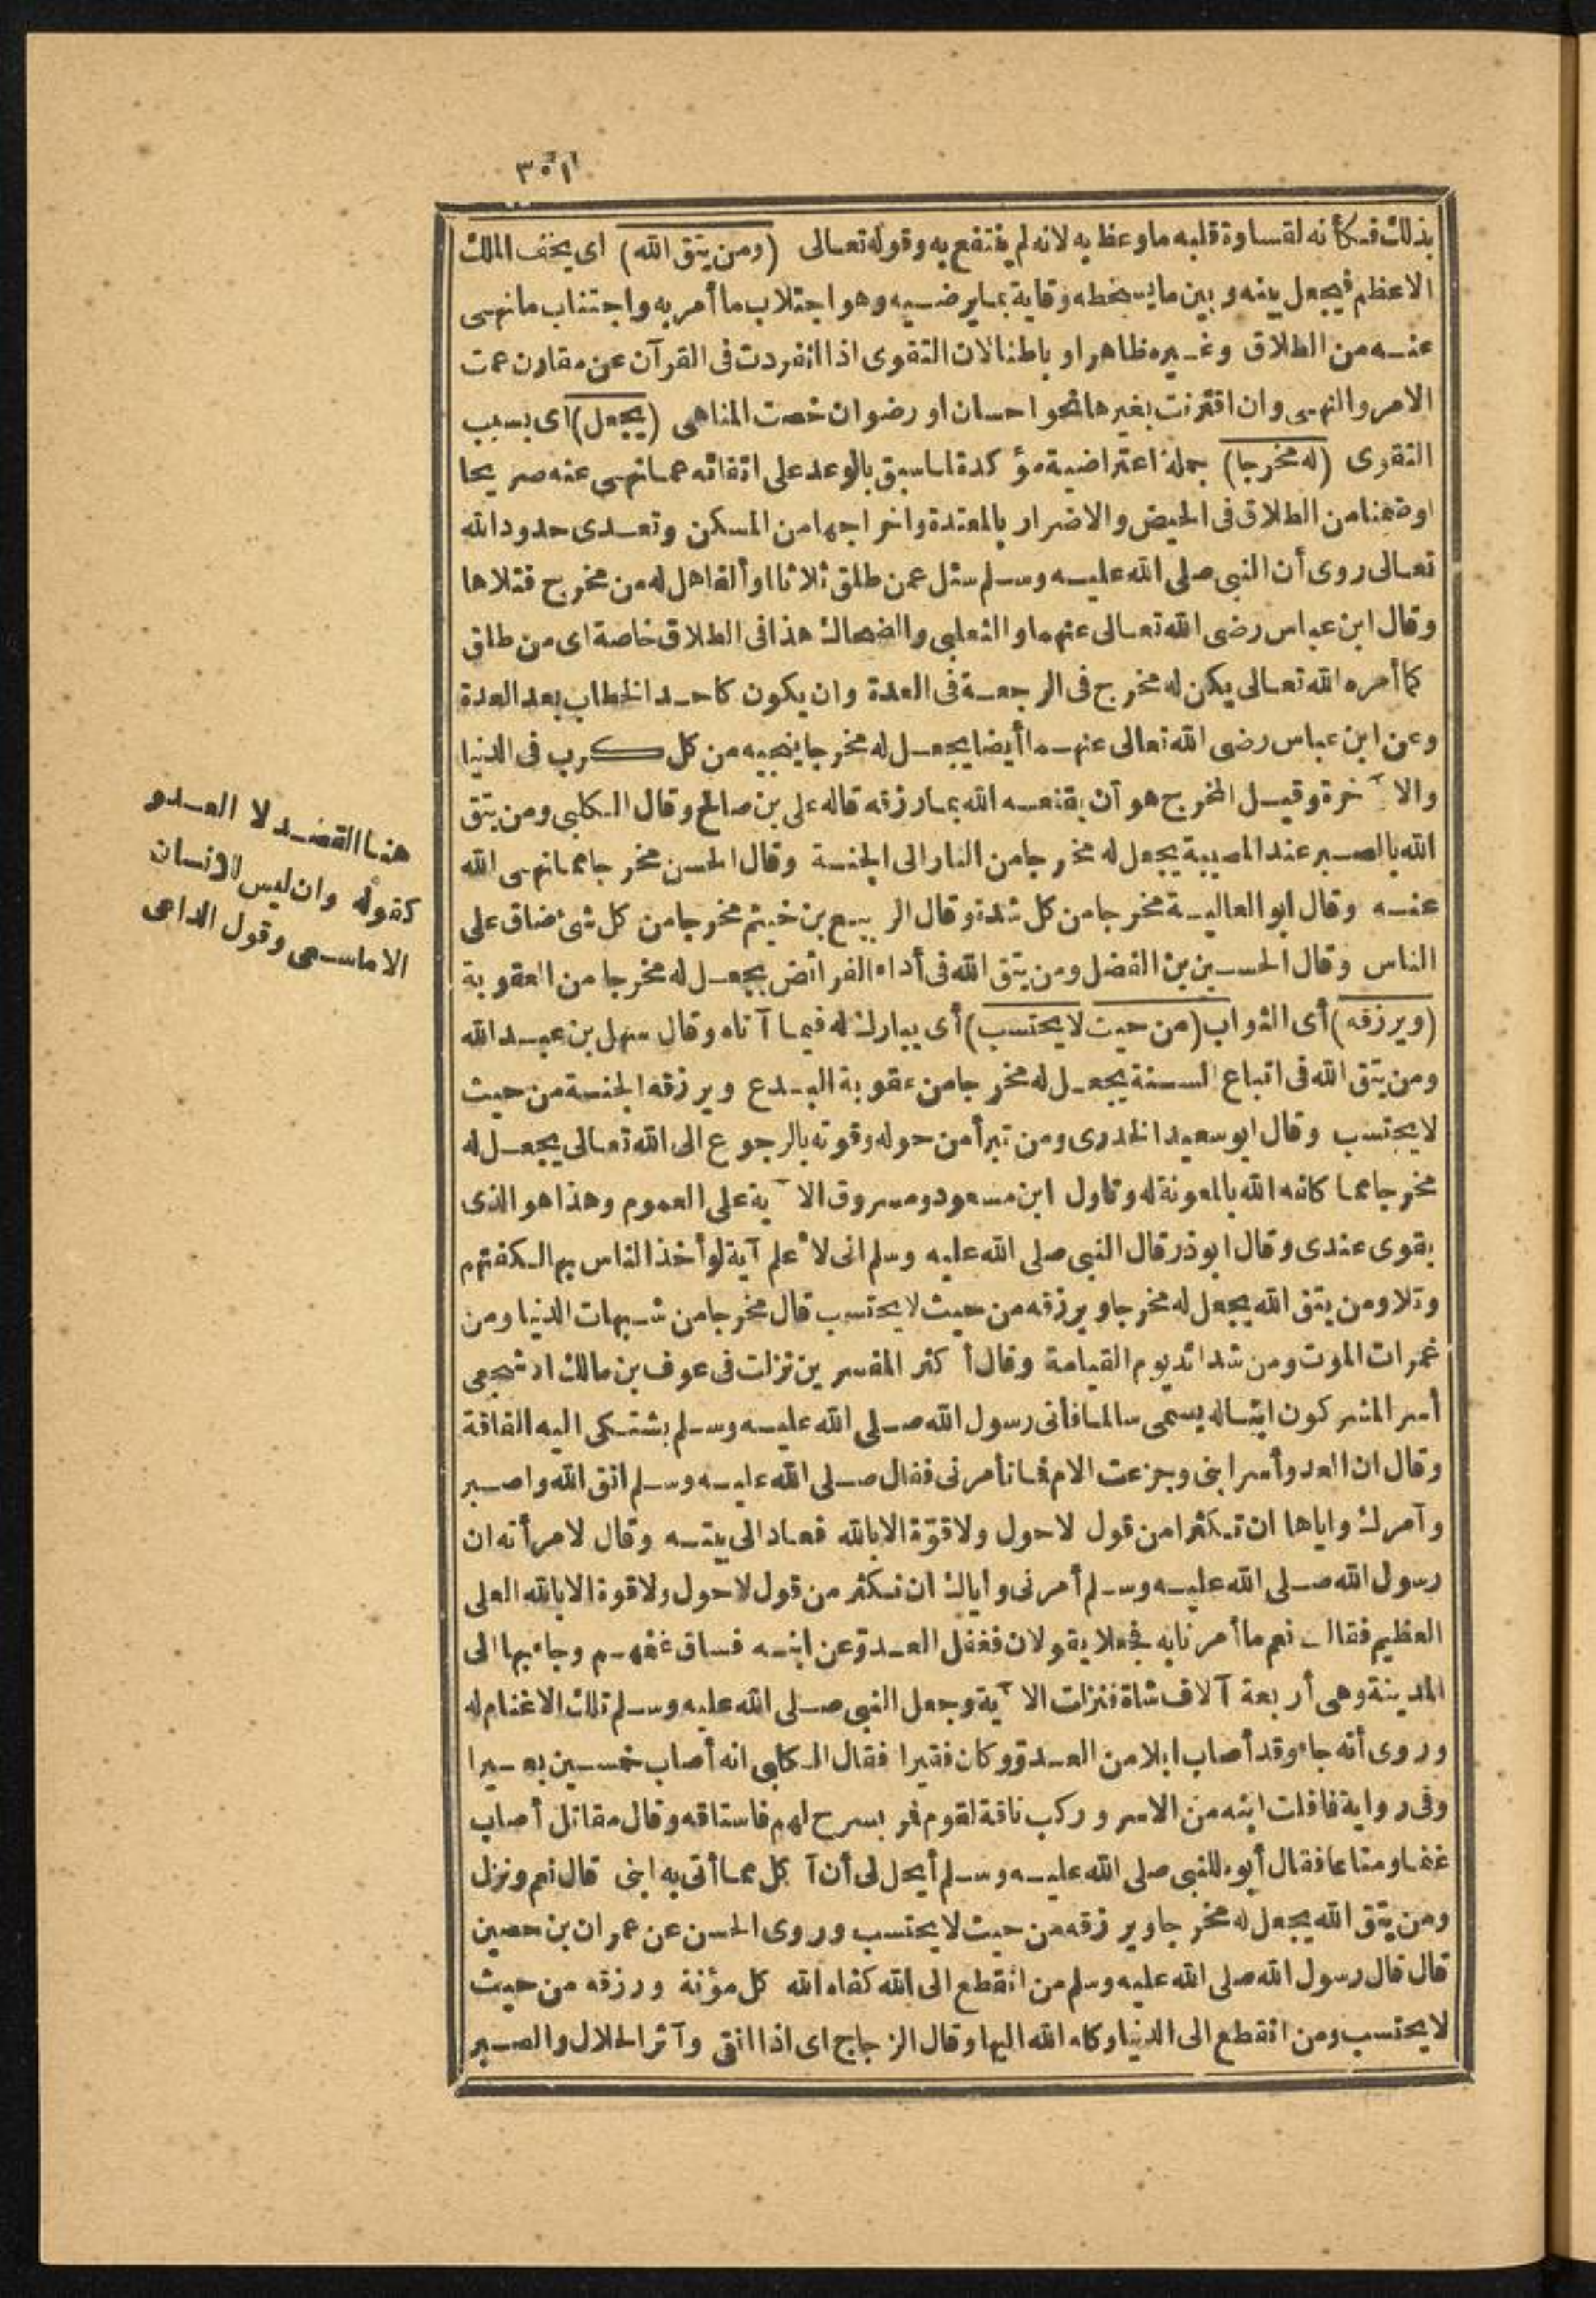 ٣٥١
بذلك فكأنه لقساوة قلبه ماوعظ به لانه لم ينتفع به وقوله تعالى (ومن يتق الله) اى يخف الملك
الاعظم فيجعل بينه وبين مايسخطه وقاية بمايرضيه وهو اجتلاب ماأمر به واجتناب مانهى
عنه من الطلاق وغيره ظاهرا و باطنا لان التقوى اذا انفردت فى القرآن عن مقارن عمت
الامر والنهى وان اقترنت بغيرها نحو احسان او رضوان خصت المناهى (يجعل) اى بسبب
التقوى (له مخرجا) جملة اعتراضية مؤكدة لماسبق بالوعد على اتقائه عمانهى عنه صريحا
اوضمنا من الطلاق فى الحيض والاضرار بالمعتدة واخراجها من المسكن وتعدى حدود الله
تعالى روى أن النبى صلى الله عليه وسلم سئل عمن طلق ثلاثا او ألفا هل له من مخرج فتلاها
وقال ابن عباس رضى الله تعالى عنهما و الثعلبى والضحاك هذا فى الطلاق خاصة اى من طلق
كما أمره الله تعالى يكن له مخرج فى الرجعة فى العدة وان يكون كاحد الخطاب بعد العدة
وعن ابن عباس رضى الله تعالى عنهما أيضا يجعل له مخرجا ينجيه من كل كرب فى الدنيا
والا ٓخرة وقيل المخرج هو أن يقنعه الله بمارزقه قاله على بن صالح وقال الكلبى ومن يتق
الله بالصبر عند المصيبة يجعل له مخرجا من النار الى الجنة وقال الحسن مخرجا عمانهى الله
عنه وقال ابو العالية مخرجا من كل شدة وقال الربيع بن خيثم مخرجا من كل شئ ضاق على
الناس وقال الحسين بن الفضل ومن يتق الله فى أداء الفرائض يجعل له مخرجا من العقوبة
(ويرزقه) أى الثواب (من حيث لايحتسب) أى يبارك له فيما آتاه وقال سهل بن عبد الله
ومن يتق الله فى اتباع السنة يجعل له مخرجا من عقوبة البدع ويرزقه الجنة من حيث
لايحتسب وقال ابوسعيد الخدرى ومن تبرأ من حوله وقوته بالرجوع الى الله تعالى يجعل له
مخرجا مما كلفه الله بالمعونة له وتاول ابن مسعود ومسروق الا ٓية على العموم وهذا هو الذى
يقوى عندى وقال ابوذر قال النبى صلى الله عليه وسلم انى لاعلم آية لو أخذ الناس بها لكفتهم
وتلا ومن يتق الله يجعل له مخرجا ويرزقه من حيث لايحتسب قال مخرجا من شبهات الدنيا ومن
غمرات الموت ومن شدائد يوم القيامة وقال أكثر المفسرين نزلت فى عوف بن مالك الاشجعى
أسر المشركون ابنا له يسمى سالما فأتى رسول الله صلى الله عليه وسلم يشتكى اليه الفاقة
وقال ان العدو أسر ابنى وجزعت الام فما تأمرنى فقال صلى الله عليه وسلم اتق الله واصبر
وآمرك واياها ان تكثرا من قول لاحول ولاقوّة الابالله فعاد الى بيته وقال لامرأته ان
رسول الله صلى الله عليه وسلم أمرنى واياك ان نكثر من قول لاحول ولاقوة الابالله العلى
العظيم فقالت نعم ماأمرنا به فجعلا يقولان فغفل العدوّ عن ابنه فساق غنمهم وجاء بها الى
المدينة وهى أربعة آلاف شاة فنزلت الا ٓية وجعل النبى صلى الله عليه وسلم تلك الاغنام له
وروى أنه جاء وقد أصاب ابلا من العدوّ وكان فقيرا فقال الكلبى انه أصاب خمسين بعيرا
وفى رواية فافلت ابنه من الاسر و ركب ناقة لقوم فمر بسرح لهم فاستاقه وقال مقاتل أصاب
غنما ومتاعا فقال أبوه للنبى صلى الله عليه وسلم أيحل لى أن آكل مما أتى به ابنى قال نعم ونزل
ومن يتق الله يجعل له مخرجا ويرزقه من حيث لايحتسب وروى الحسن عن عمران بن حصين
قال قال رسول الله صلى الله عليه وسلم من انقطع الى الله كفاه الله كل مؤنة ورزقه من حيث
لايحتسب ومن انقطع الى الدنيا وكله الله اليها وقال الزجاج اى اذا اتقى وآثر الحلال والصبر
هنا القصد لا العدو
كقوله وان ليس للانسان
الا ماسعى وقول الداعى